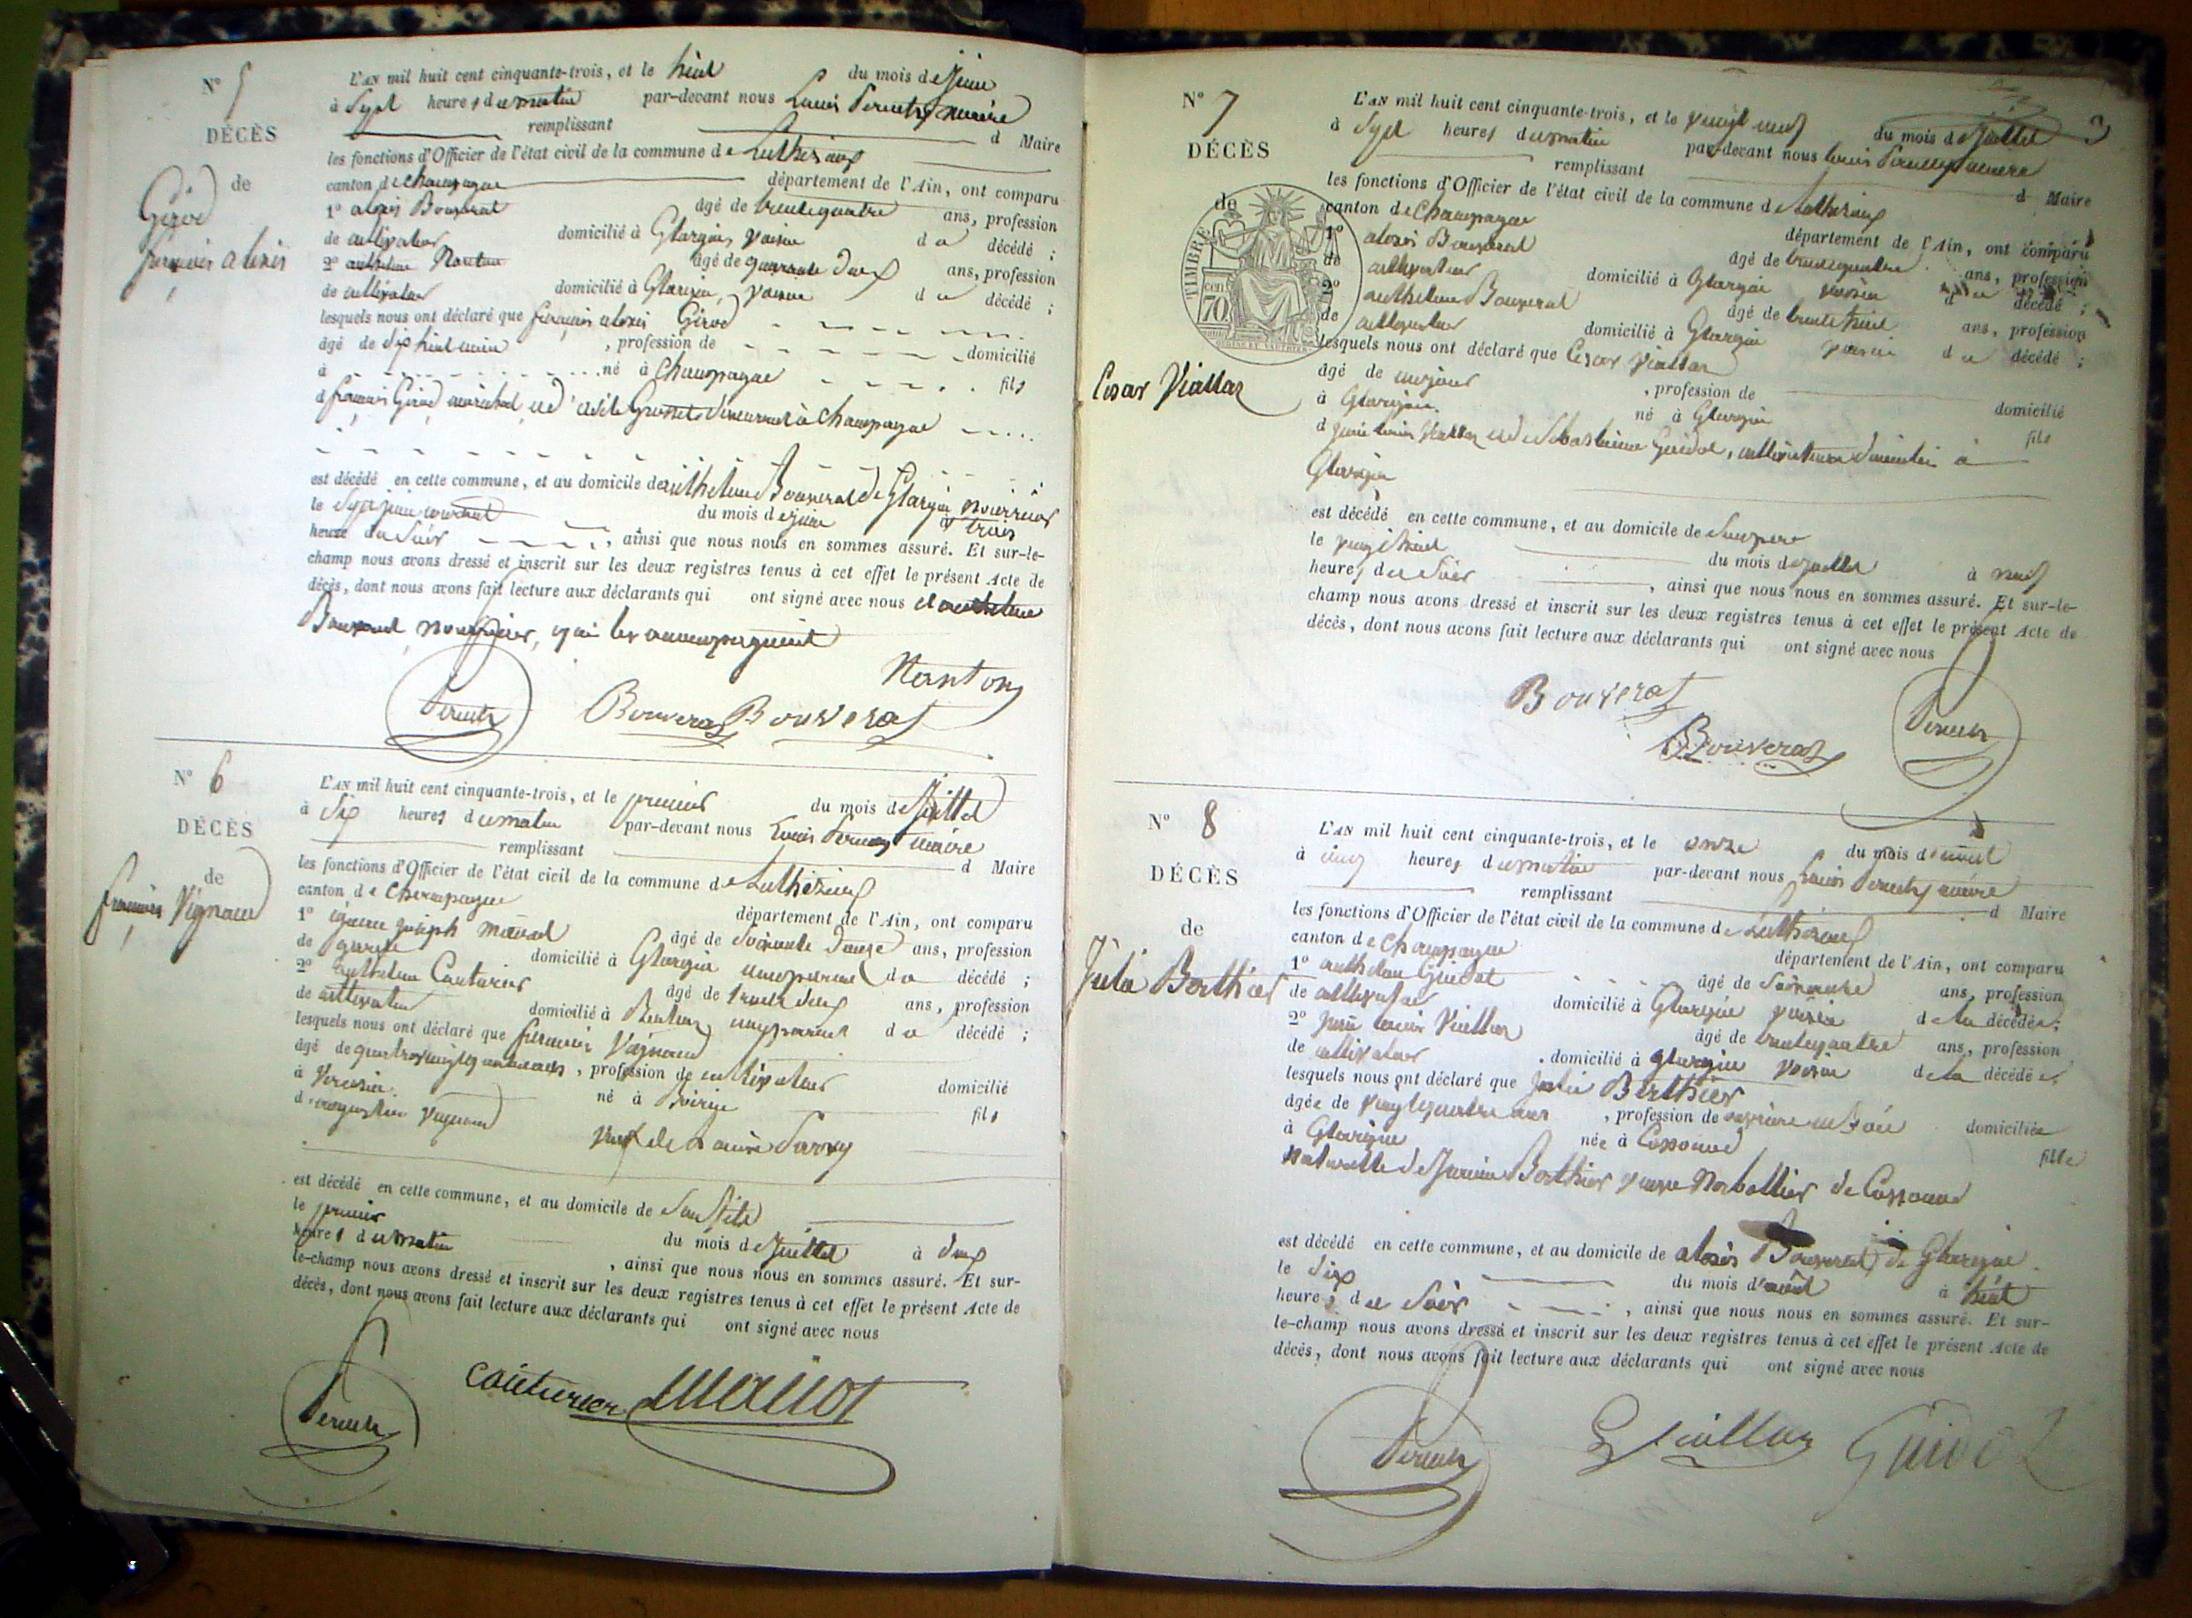 N° 5
DÉCÈS
de
Girod
françois alexis
L'AN mil huit cent cinquante-trois, et le huit du mois de Juin
à Sept heures du matin par-devant nous Louis maire
remplissant d Maire
les fonctions d'Officier de l'état civil de la commune de Luthézieu
canton de Champagne département de l'Ain, ont comparu
1° alexis Bouverat âgé de trente quatre ans, profession
de cultivateur domicilié à Glargin, voisin du décédé ;
2° anthelme Nanton âgé de quarante deux ans, profession
de cultivateur domicilié à Glargin, voisin du décédé ;
lesquels nous ont déclaré que françois alexis Girod
âgé de dix huit mois , profession de domicilié
à né à Champagne fils
d françois Girod maréchal et d' demeurant à Champagne
est décédé en cette commune, et au domicile de anthelme Bouverat de Glargin nourricier
le Sept juin courant du mois de juin à trois
heure du Soir , ainsi que nous nous en sommes assuré. Et sur-le-
champ nous avons dressé et inscrit sur les deux registres tenus à cet effet le présent Acte de
décès, dont nous avons fait lecture aux déclarants qui ont signé avec nous et anthelme
Bouverat, nourricier, qui les accompagnait
Nanton
Bouverat Bouverat
N° 6
DÉCÈS
de
françois Vignaud
L'AN mil huit cent cinquante-trois, et le premier du mois de Juillet
à Six heures du matin par-devant nous Louis maire
remplissant d Maire
les fonctions d'Officier de l'état civil de la commune de Luthézieu
canton de Champagne département de l'Ain, ont comparu
1° joseph âgé de Soixante ans, profession
de garde domicilié à Glargin du décédé ;
2° anthelme Couturier âgé de trente deux ans, profession
de cultivateur domicilié à du décédé ;
lesquels nous ont déclaré que françois Vignaud
âgé de quatre vingts , profession de cultivateur domicilié
à né à fils
d'augustin Vignaud veuf de
est décédé en cette commune, et au domicile de
le premier du mois de Juillet à deux
heures du matin , ainsi que nous nous en sommes assuré. Et sur-
le-champ nous avons dressé et inscrit sur les deux registres tenus à cet effet le présent Acte de
décès, dont nous avons fait lecture aux déclarants qui ont signé avec nous
couturier
N° 7
DÉCÈS
de
TIMBRE
70
Cesar Viallaz
L'AN mil huit cent cinquante-trois, et le vingt neuf du mois de Juillet
à Sept heures du matin par-devant nous Louis maire
remplissant d Maire
les fonctions d'Officier de l'état civil de la commune de Luthézieu
canton de Champagne département de l'Ain, ont comparu
1° alexis Bouverat âgé de trente quatre ans, profession
de cultivateur domicilié à Glargin voisin du décédé ;
2° anthelme Bouverat âgé de trente huit ans, profession
de cultivateur domicilié à Glargin voisin du décédé ;
lesquels nous ont déclaré que Cesar Viallaz
âgé de un jour , profession de domicilié
à Glargin né à Glargin fils
d Jean Louis Viallaz et de Sébastienne Guidot, cultivateurs domiciliés à
Glargin
est décédé en cette commune, et au domicile de Son père
le vingt huit du mois de juillet à neuf
heures du Soir , ainsi que nous nous en sommes assuré. Et sur-le-
champ nous avons dressé et inscrit sur les deux registres tenus à cet effet le présent Acte de
décès, dont nous avons fait lecture aux déclarants qui ont signé avec nous
Bouverat
Bouverat
N° 8
DÉCÈS
de
Julie Berthier
L'AN mil huit cent cinquante-trois, et le onze du mois d'août
à cinq heures du matin par-devant nous Louis maire
remplissant d Maire
les fonctions d'Officier de l'état civil de la commune de Luthézieu
canton de Champagne département de l'Ain, ont comparu
1° anthelme Guidot âgé de Soixante ans, profession
de cultivateur domicilié à Glargin voisin de la décédée ;
2° Jean Louis Viallaz âgé de trente quatre ans, profession
de cultivateur domicilié à Glargin voisin de la décédée
lesquels nous ont déclaré que Julie Berthier
âgée de vingt quatre ans , profession de ouvrière en Soie domiciliée
à Glargin née à fille
naturelle de Berthier veuve de
est décédé en cette commune, et au domicile de alexis Bouverat, de Glargin
le dix du mois d'août à huit
heures du Soir , ainsi que nous nous en sommes assuré. Et sur-
le-champ nous avons dressé et inscrit sur les deux registres tenus à cet effet le présent Acte de
décès, dont nous avons fait lecture aux déclarants qui ont signé avec nous
Viallaz Guidot